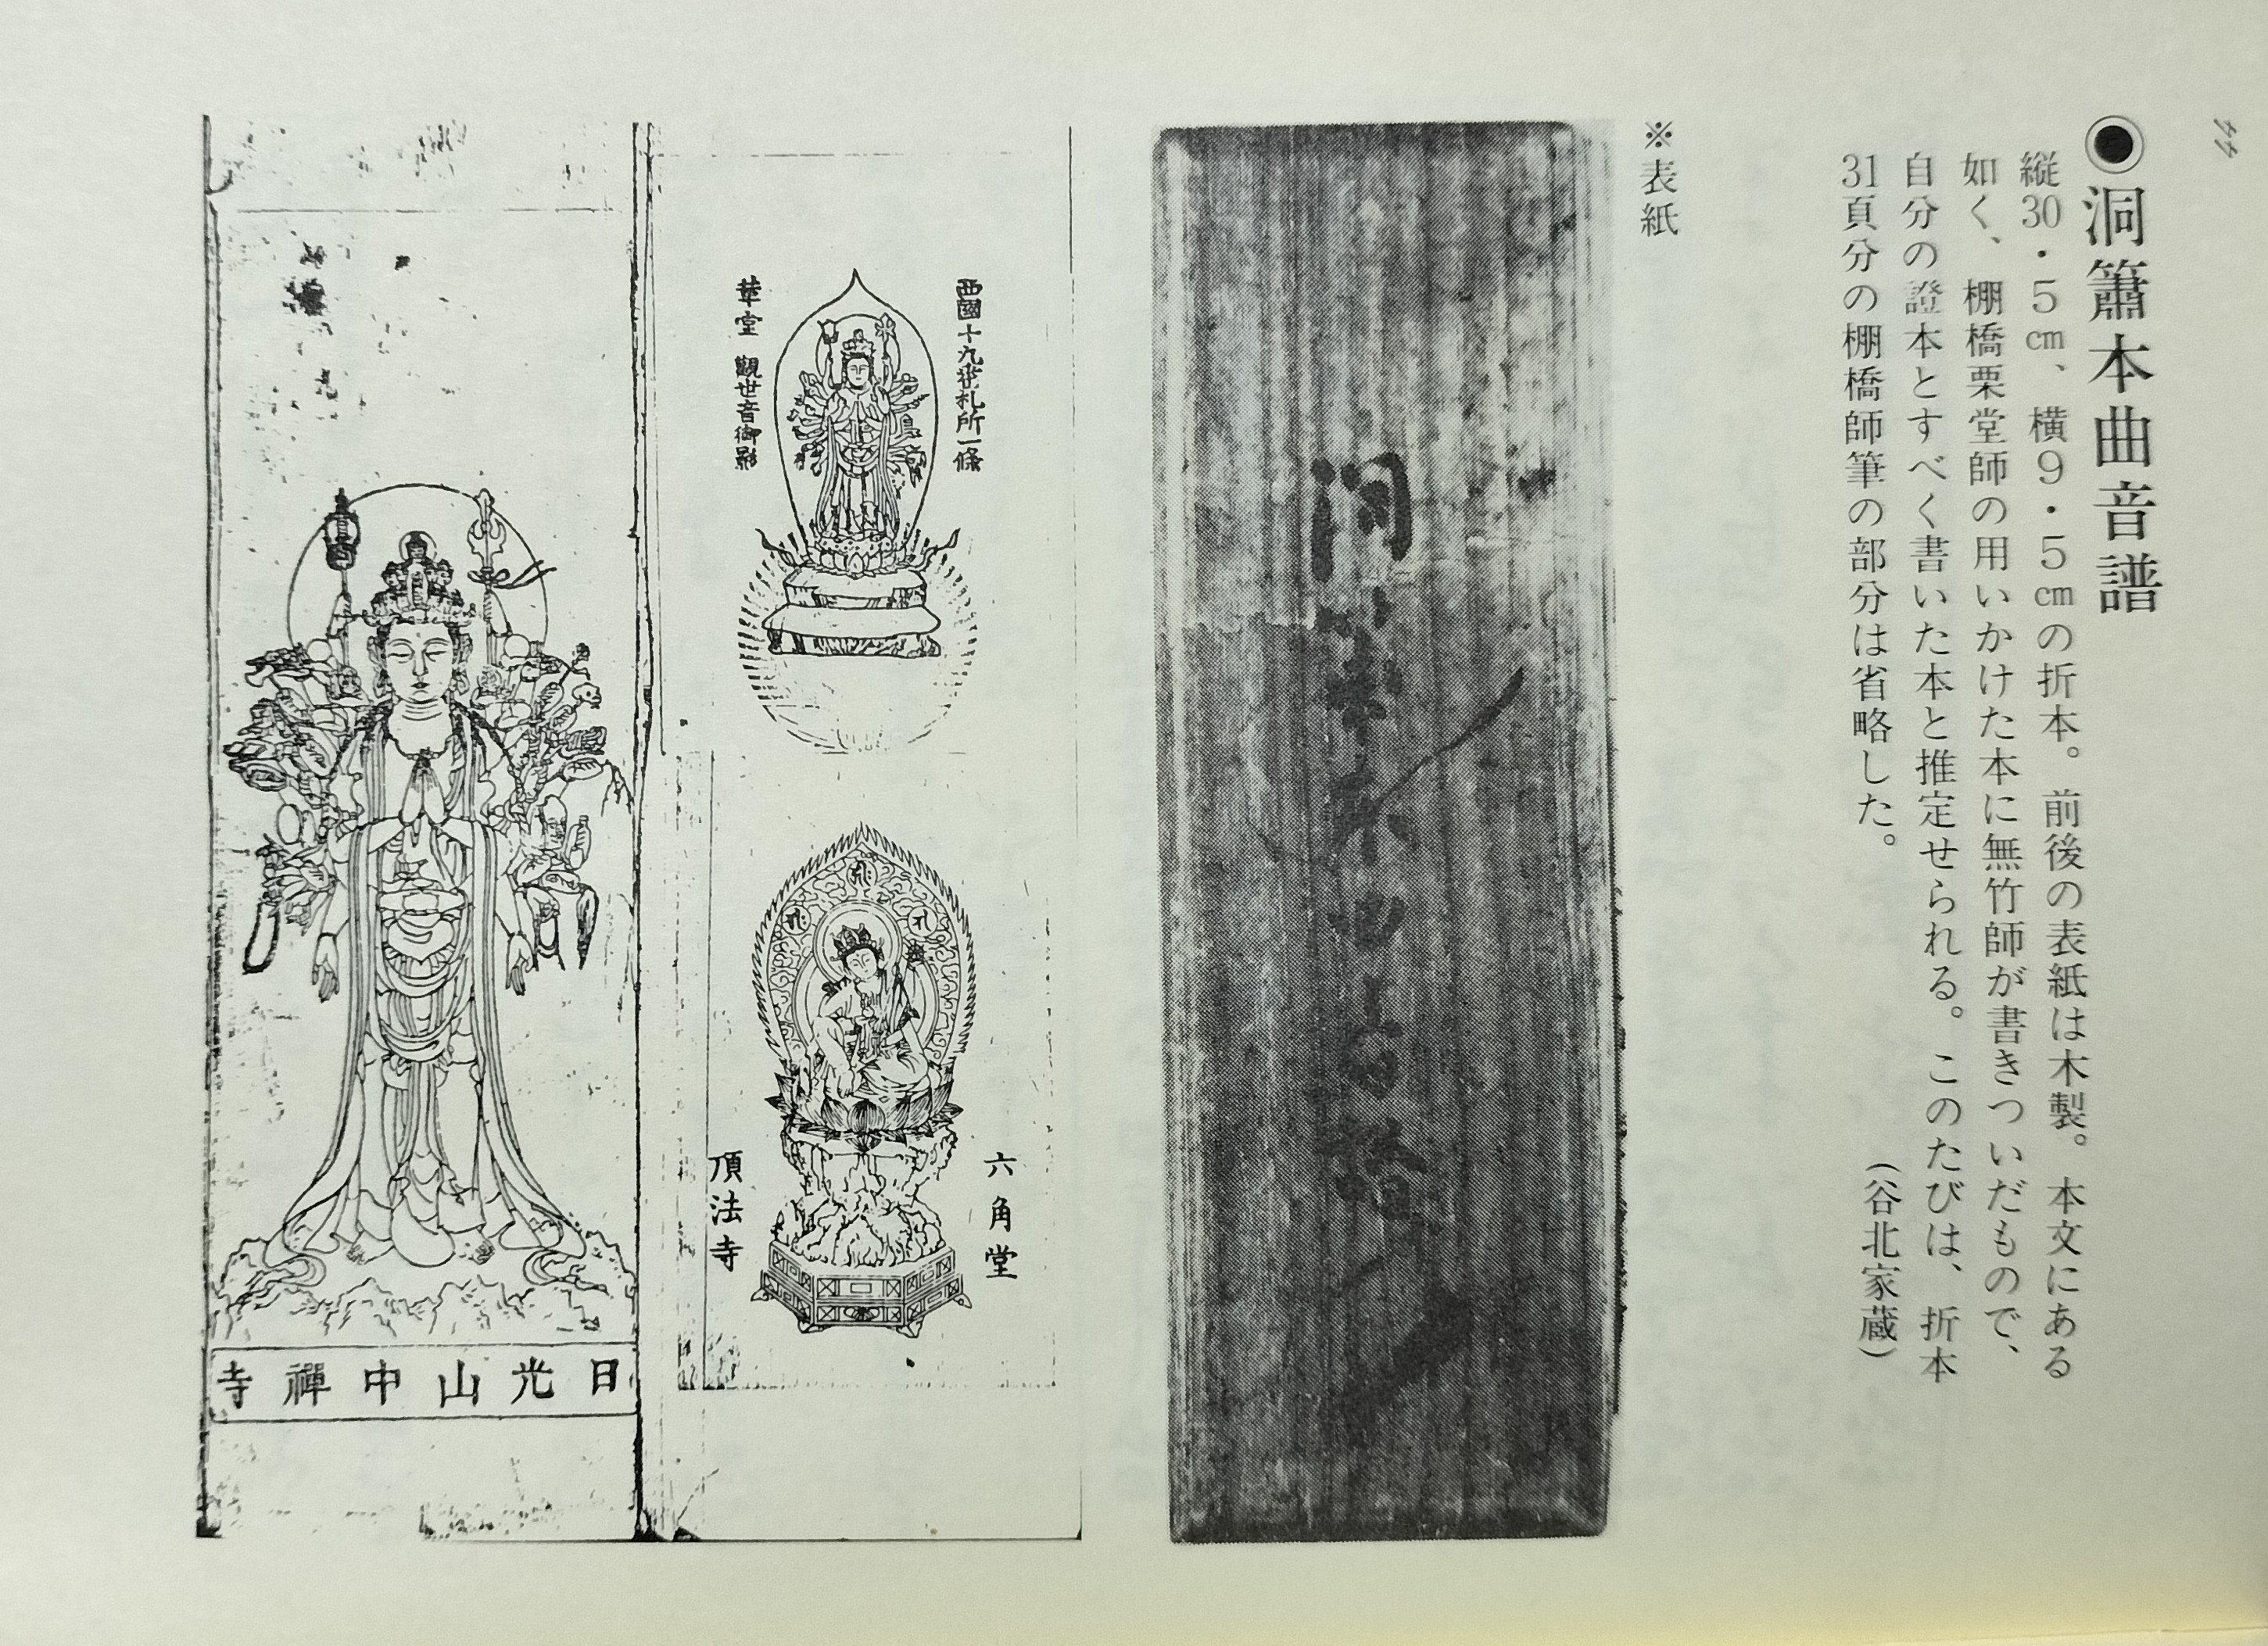 ●洞簫本曲音譜
縦30・5㎝、横9・5㎝の折本。前後の表紙は木製。本文にある
如く、棚橋栗堂師の用いかけた本に無竹師が書きついだもので、
自分の證本とすべく書いた本と推定せられる。このたびは、折本
31頁分の棚橋師筆の部分は省略した。
(谷北家蔵)
※表紙
洞簫本曲音譜
西國十九番札所一條
革堂 觀世音御影
六角堂
頂法寺
日光山中禪寺